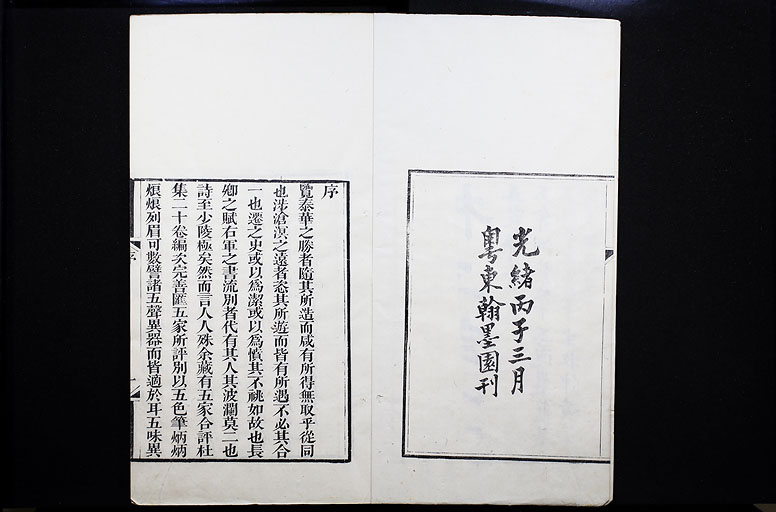 光緒丙子三月
粵東翰墨園刊
序
覽泰華之勝者隨其所造而咸有所得無取乎從同
也涉滄溟之遠者恣其所遊而皆有所遇不必其合
一也遷之史或以為潔或以為憤其不祧如故也長
卿之賦右軍之書流別者代有其人其波瀾莫二也
詩至少陵極矣然而言人人殊余藏有五家合評杜
集二十卷編次完善匯五家所評別以五色筆炳炳
烺烺列眉可數譬諸五聲異器而皆適於耳五味異
序